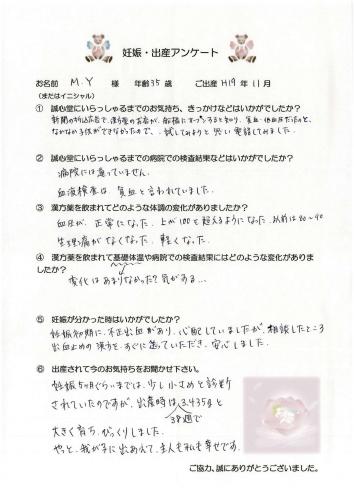 妊娠・出産アンケート
お名前 M.Y 様 年齢 35 歳 ご出産 H19 年 11 月
(またはイニシャル)
① 誠心堂にいらっしゃるまでのお気持ち、きっかけなどはいかがでしたか?
新聞の折込広告で、漢方薬のお店が、船橋にオープンすると知り、貧血・低血圧だったのと、
なかなか子供ができなかったので、試してみようと思い電話してみました。
② 誠心堂にいらっしゃるまでの病院での検査結果などはいかがでしたか?
病院には通っていません。
血液検査は、貧血と言われていました。
③ 漢方薬を飲まれてどのような体調の変化がありましたか?
血圧が、正常になった。上が100を超えるようになった。以前は80~90
生理痛がなくなった。軽くなった。
④ 漢方薬を飲まれて基礎体温や病院での検査結果にはどのような変化がありましたか?
変化はあまりなかった?気がする…
⑤ 妊娠が分かった時はいかがでしたか?
妊娠初期に、不正出血があり、心配していましたが、相談したところ
出血止めの漢方を、すぐに送っていただき、安心しました。
⑥ 出産されて今のお気持ちをお聞かせ下さい。
妊娠5ヶ月ぐらいまでは、少し小さめと診断
されていたのですが、出産時は3,435gと
38週で
大きく育ち、びっくりしました。
やっと、我が子に出会えて、主人も私も幸せです。
ご協力、誠にありがとうございました。